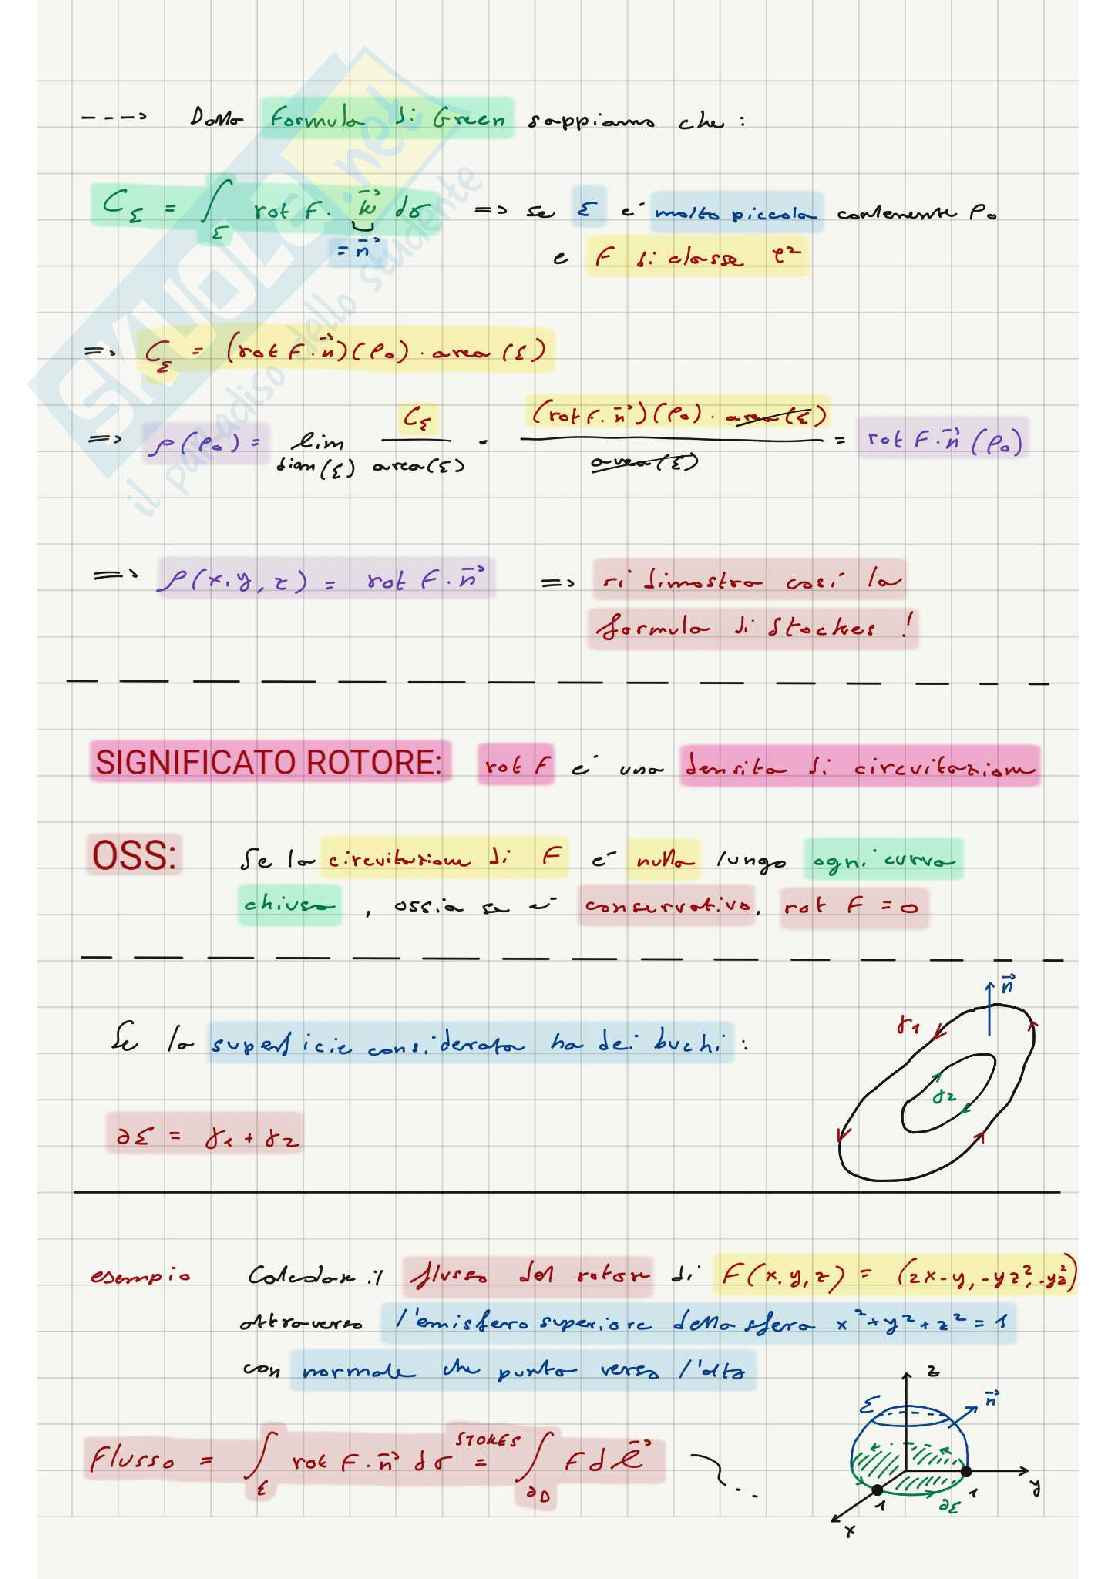 ---> Dalla Formula di Green sappiamo che :
C_Σ = ∫_Σ rot F · k⃗ dσ => se Σ è molto piccola contenente P₀
= n⃗ e F di classe C²
=> C_Σ = (rot F · n⃗)(P₀) · area(Σ)
=> ρ(P₀) = lim C_Σ / area(Σ) = (rot F · n⃗)(P₀) · area(Σ) / area(Σ) = rot F · n⃗ (P₀)
diam(Σ)
=> ρ(x,y,z) = rot F · n⃗ => ri dimostra così la
formula di Stockes !
SIGNIFICATO ROTORE: rot F è una densità di circuitazione
OSS: Se la circuitazione di F è nulla lungo ogni curva
chiusa , ossia se è conservativo, rot F = 0
n⃗
γ1
Se la superficie considerata ha dei buchi :
γ2
∂Σ = γ1 + γ2
esempio Calcolare il flusso del rotore di F(x,y,z) = (2x-y, -yz², -yz²)
attraverso l'emisfero superiore della sfera x²+y²+z² = 1
con normale che punta verso l'alto
z
Σ n⃗
Flusso = ∫_Σ rot F · n⃗ dσ STOKES = ∫_∂D F dℓ⃗
1 1 y
∂Σ
x
SKUOLA.net
il paradiso dello studente